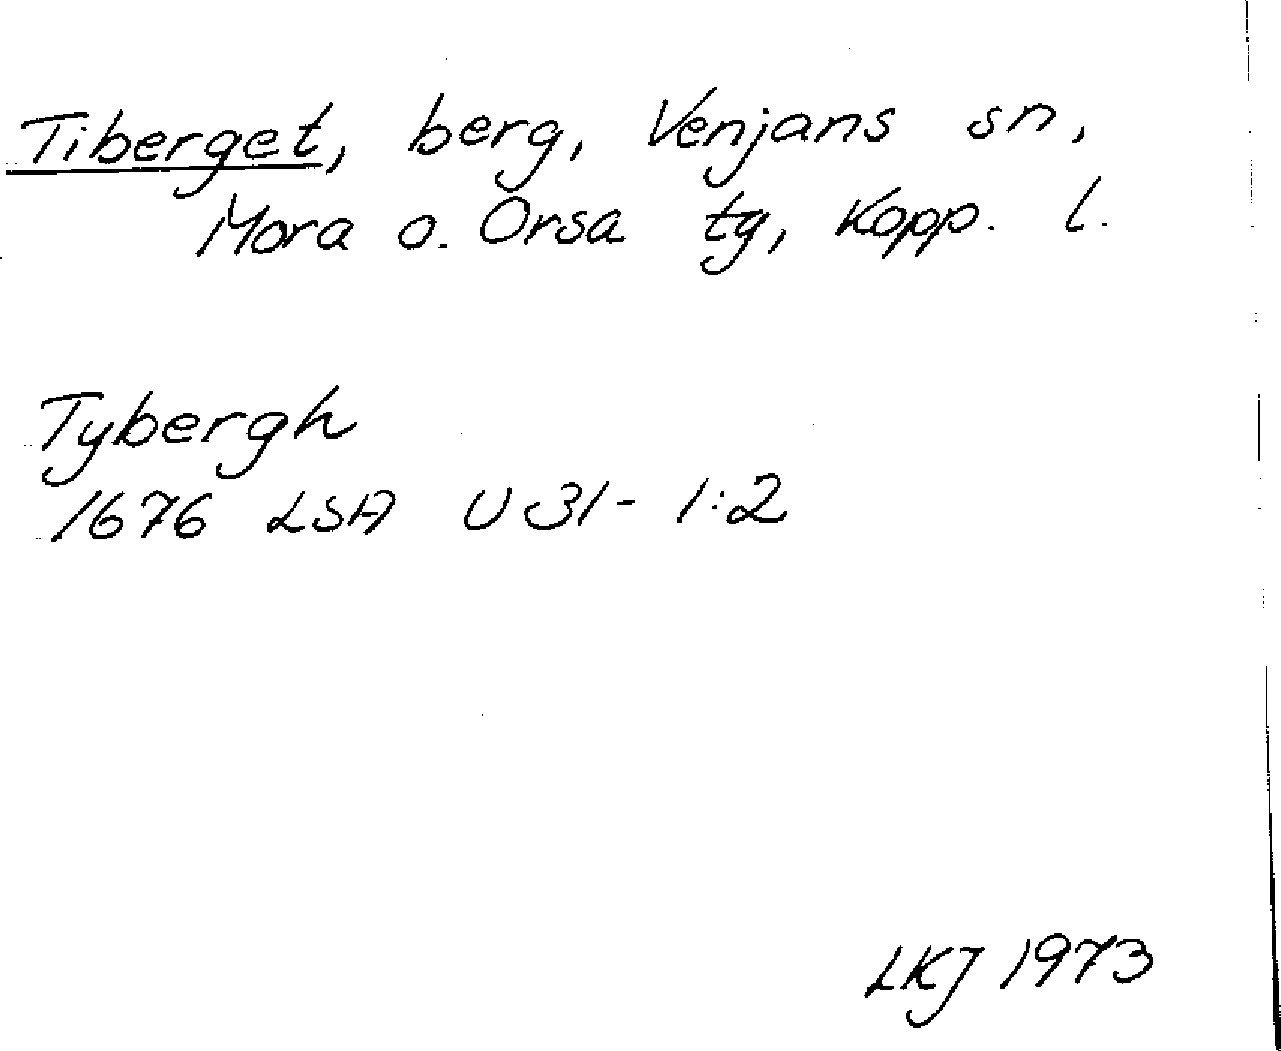 Tiberget, berg, Venjans sn,
Mora o. Orsa tg, Kopp. l.
Tybergh
1676 LSA U 31- 1:2
LKJ 1973